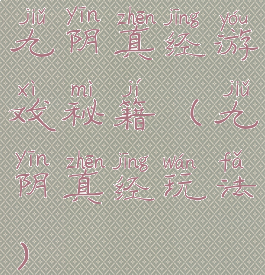 jiǔ yīn zhēn jīng yóu
九阴真经游
xì mì jí jiǔ
戏秘籍(九
yīn zhēn jīng wán fǎ
阴真经玩法
)